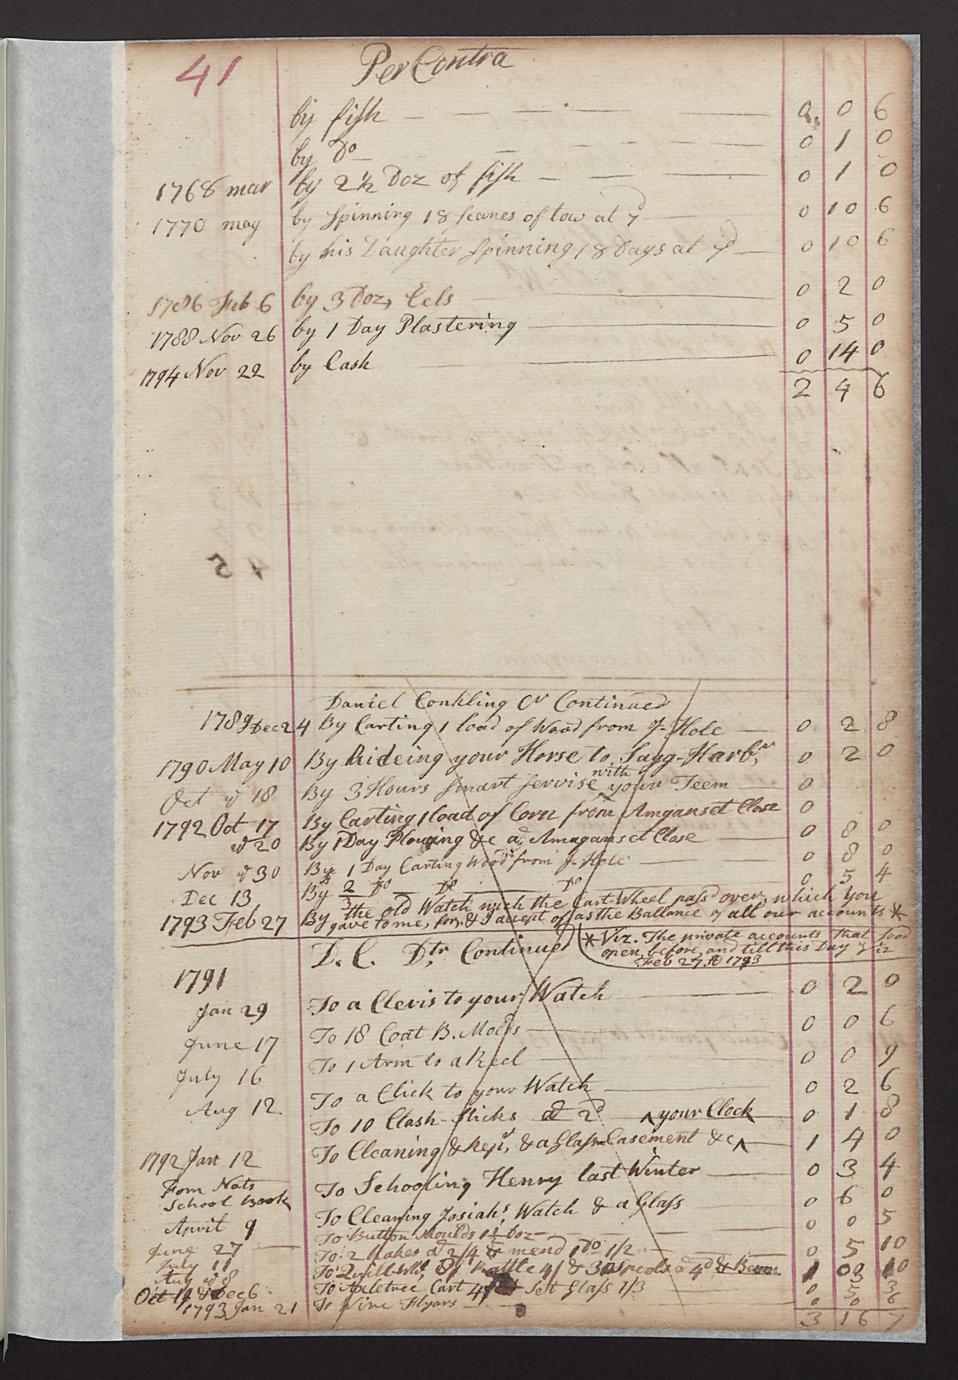 41 Per Contra
by fish 0 0 6
by Do 0 1 0
1768 mar by 2 1/2 Doz of fish 0 1 0
1770 may by Spinning 18 scanes of tow at 7d 0 10 6
by his Daughter Spinning 18 Days at 7d 0 10 6
1786 Feb 6 by 3 Doz, Eels 0 2 0
1788 Nov 26 by 1 Day Plastering 0 5 0
1794 Nov 22 by Cash 0 14 0
2 4 6
Daniel Conkling Cr Continued
1789 Dec 24 By Carting 1 load of Wood from J. Hole 0 2 8
1790 May 10 By Rideing your Horse to Sagg-Harbr 0 2 0
Oct ye 18 By 3 Hours smart servise with your Teem 0
1792 Oct 17 By Carting 1 load of Corn from Amganset Close 0
ye 20 By 1 Day Plowing &c at Amagamset Close 0 8 0
Nov ye 30 By 1 Day Carting Wood from J. Hole 0 8 0
Dec 13 By 2/3 Do Do Do 0 5 4
1793 Feb 27 By the old Watch wich the Cart Wheel pass'd over, which you
gave to me, for, & I accept of as the Ballance of all our accounts *
* Viz. The private accounts that stood
open before, and till this Day Viz
Feb 27, AD 1793
D. C. Dtr Continued
1791
Jan 29 To a Clevis to your Watch 0 2 0
June 17 To 18 Coat B. Molds 0 0 6
July 16 To 1 Arm to a Reel 0 0 9
Aug 12 To a Click to your Watch 0 2 6
To 10 Clash-sticks at 2d 0 1 8
1792 Jan 12 To Cleaning & Repr, & a Glass Casement &c ^ your Clock 1 4 0
From Nats School Book To Schooling Henry last Winter 0 3 4
April 9 To Cleaning Josiahs Watch & a Glass 0 6 0
To Button Moulds 1 1/2 Doz 0 0 5
June 27 To 2 Rakes at 2/4 & mend 1 Do 1/2 0 5 10
July 11 4/ & 3
Aug ye 8 To Axletree Cart 4/ Set Glass 1/3
Oct 19 & Dec 6
1793 Jan 21 To Flyars
3 16 7